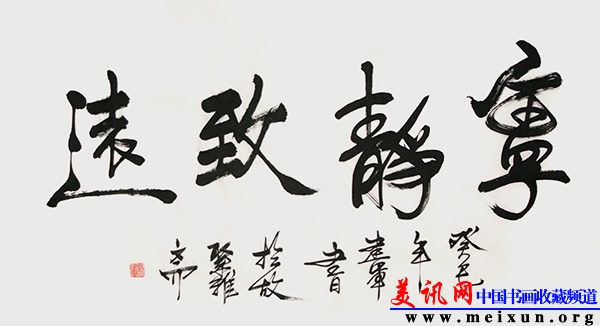 寧靜致遠
癸巳
年
書
於故
齋
美讯网 中国书画收藏频道
www.meixun.org